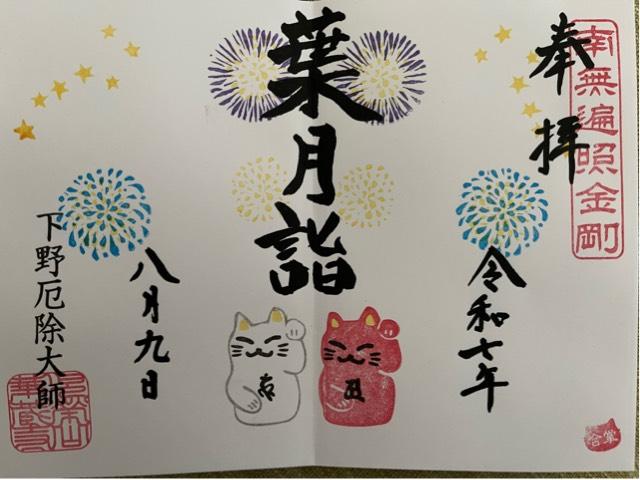 南無遍照金剛
奉拝
令和七年
葉月詣
八月九日
下野厄除大師
合掌